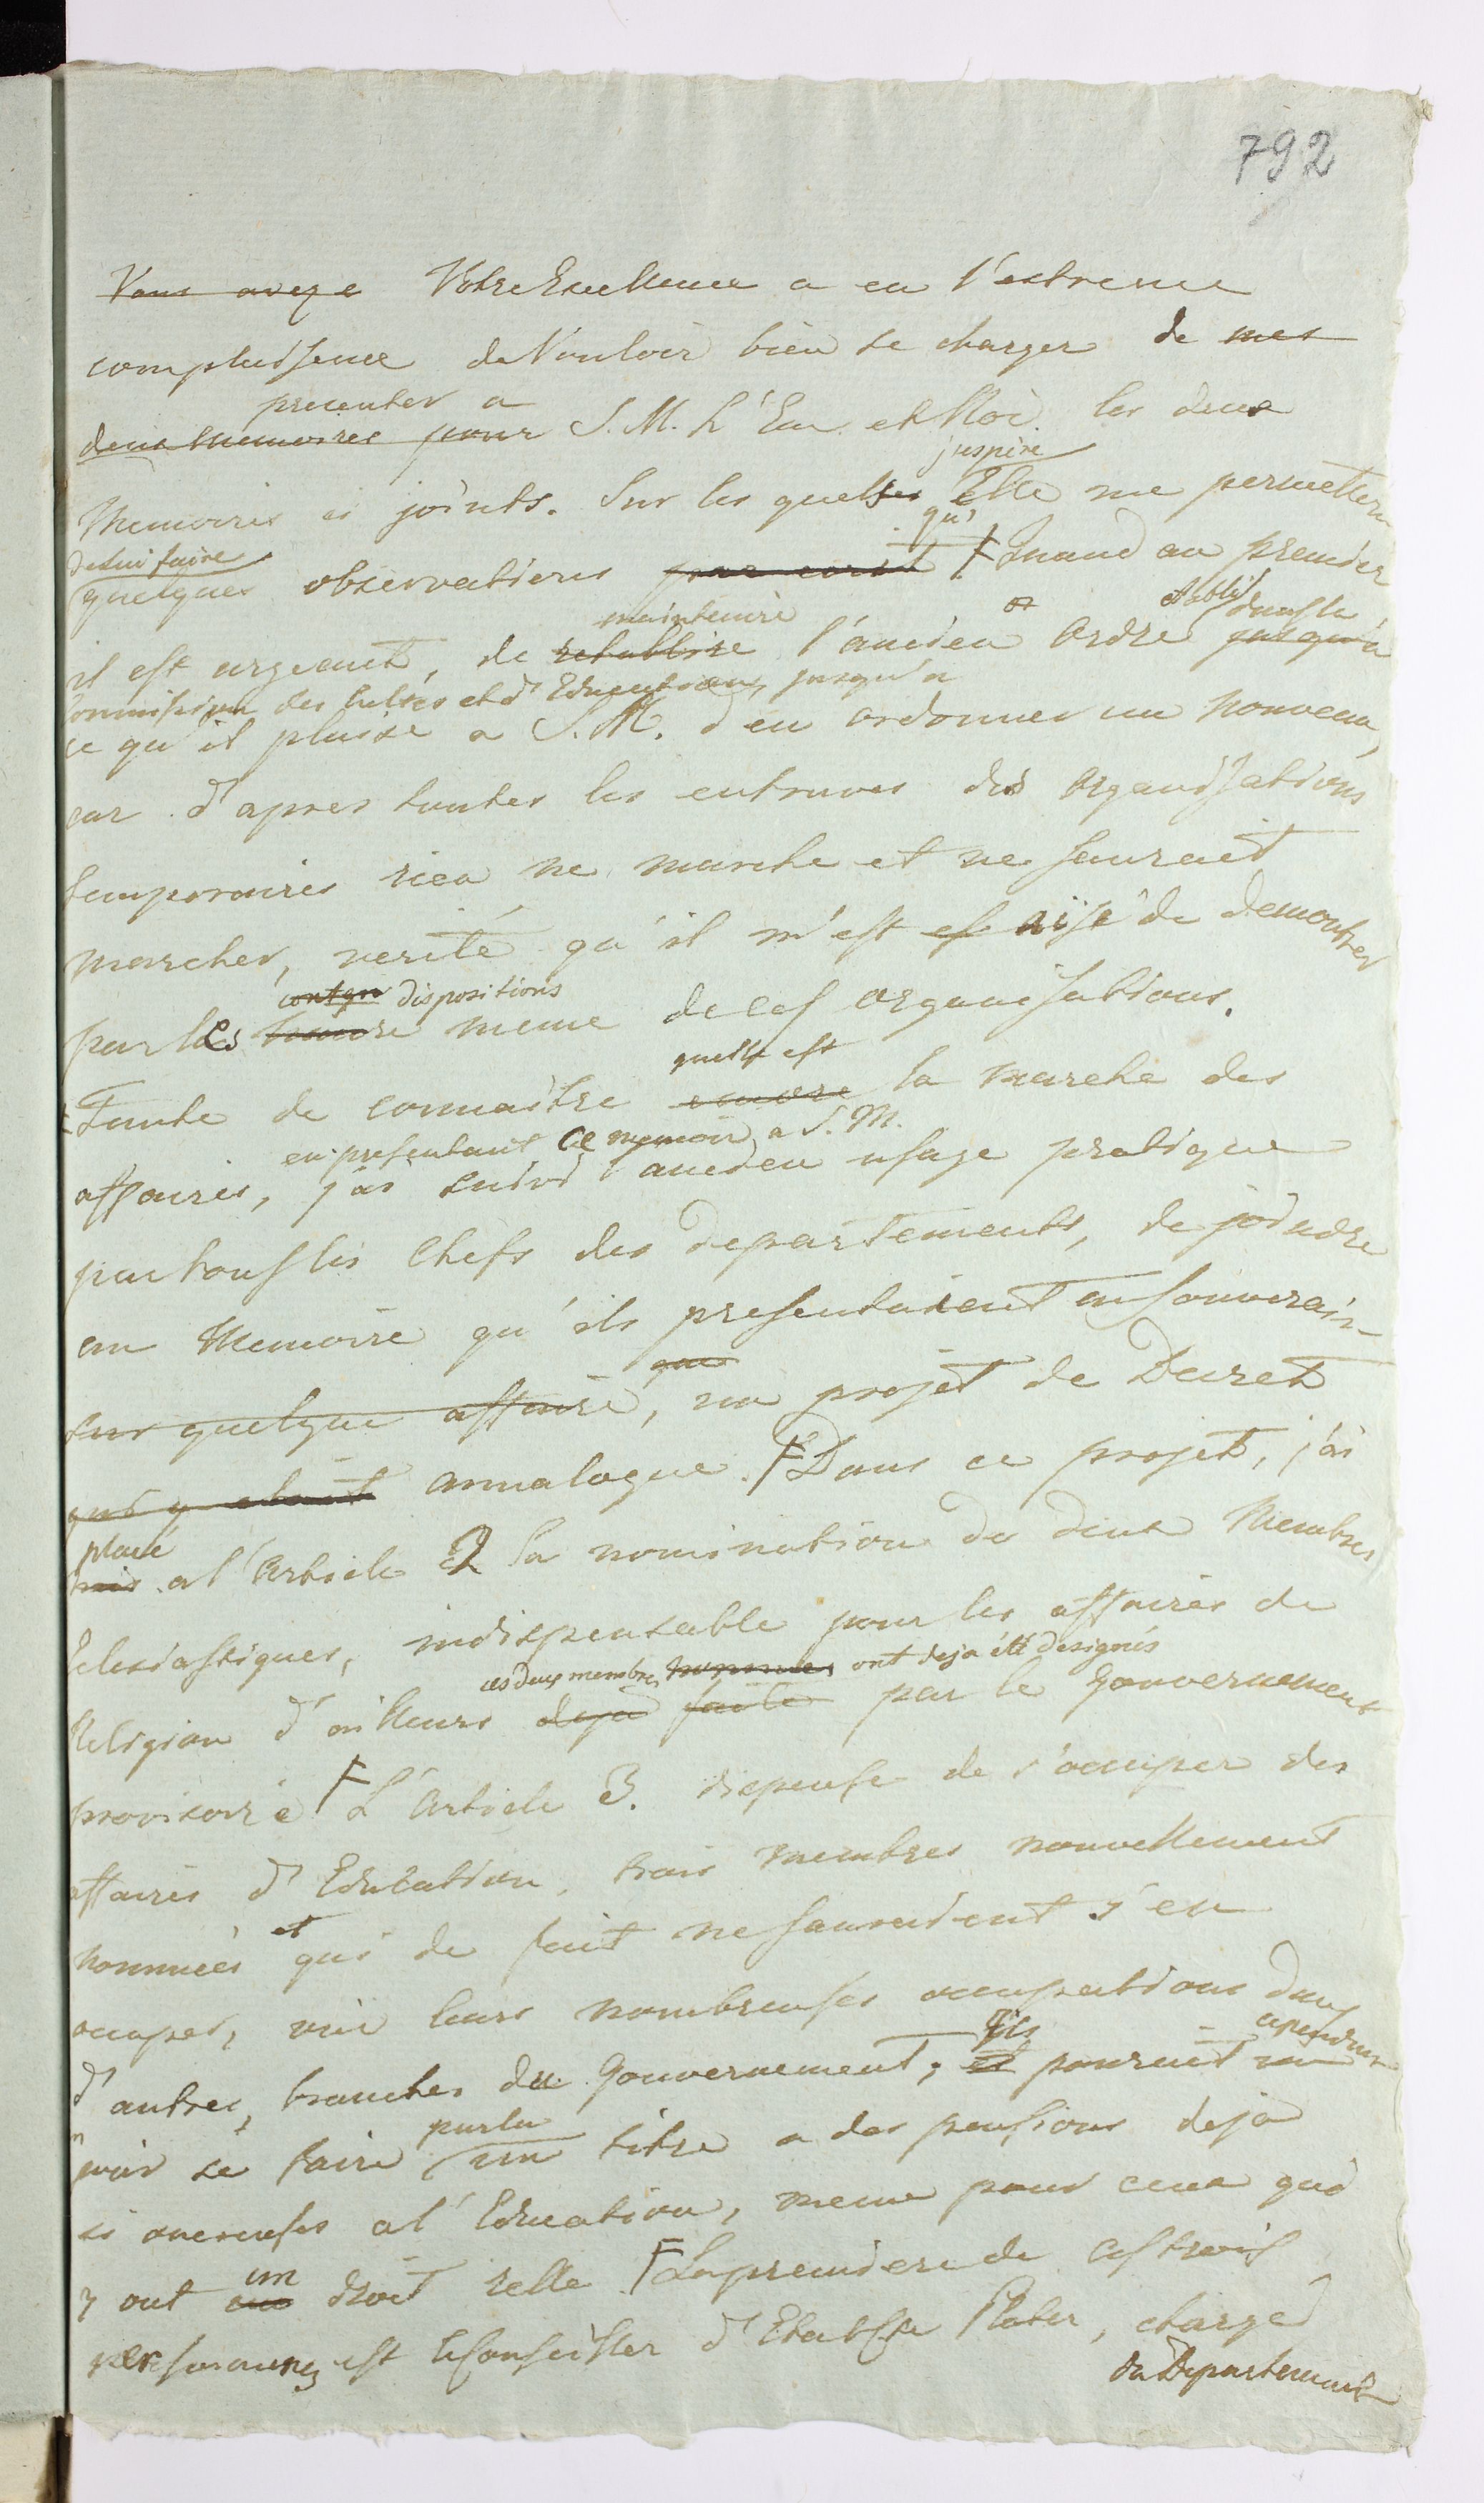 792
Vous avez Votre Excellence a eu l'extreme
complaisence de Vouloir bien se charger de mes
presenter a
deux Memoires pour S. M. L'Em. et Roi. les deux
j'espère
Memoires ci joints. Sur les quelles Elle me permettera
de lui faire qu'
quelques observations par ecrit F Quand au premier
maintenire et etabli dans la
il est urgeant, de retablire l'ancien Ordre jusqu'a
Commission des Cultes et d'Education, jusqu'a
ce qu'il plaise a S. M. d'en ordonner un nouveau,
car d'apres toutes les entraves des Organisations
temporaires rien ne marche et ne saurait
marcher, verité qu'il m'est aisé de demontrer
dispositions
par les meme de ces organisations.
quelle est
Faute de connaitre encore la marche des
en presentant ce memoir a S. M.
affaires, j'ai suivi l'ancien usage pratique
par tous les Chefs des departements, de joindre
au Memoire qu'ils presentaient au Souverain
que
sur quelque affaire, un projet de Decret
qui y etait annalogue. F Dans ce projet, j'ai
placé
mis a l'Article 2 la nomination de deux Membres
Eclesiastiques, indispensable pour les affaires de
ces deux membres nommés ont deja été designés
Religion d'ailleurs deja faite par le Gouvernement
provisoire F L'Article 3. dispense de s'occuper des
affaires d'Education, trois membres nouvellement
et
nommées qui de fait ne sauraient s'en
occuper, vue leurs nombreuses occupations dans
cependant
d'autres branches du Gouvernement; et pourait
par la
se faire un titre a des pensions deja
si onereuses a l'Education, meme pour ceux qui
un
y ont droit réelle. F La premiere de ces trois
personnes est le Conseiller d'Etat Cte Plater, chargé
du Departement